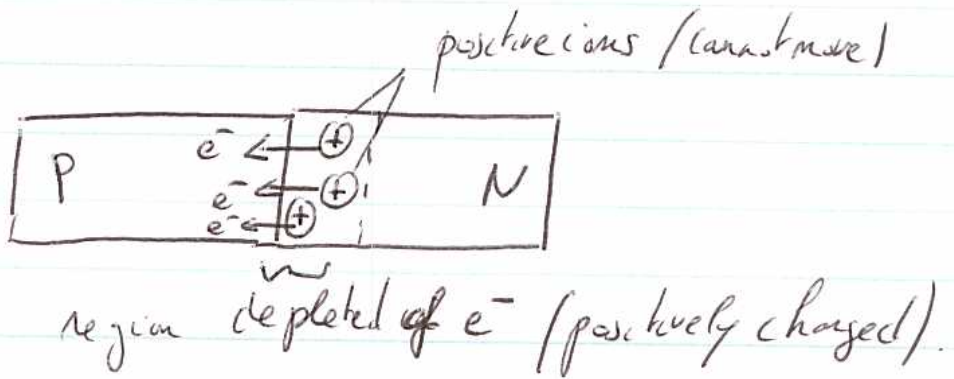 positive ions (cannot move)
P e⁻ + N
e⁻ +
e⁻ +
region depleted of e⁻ (positively charged).